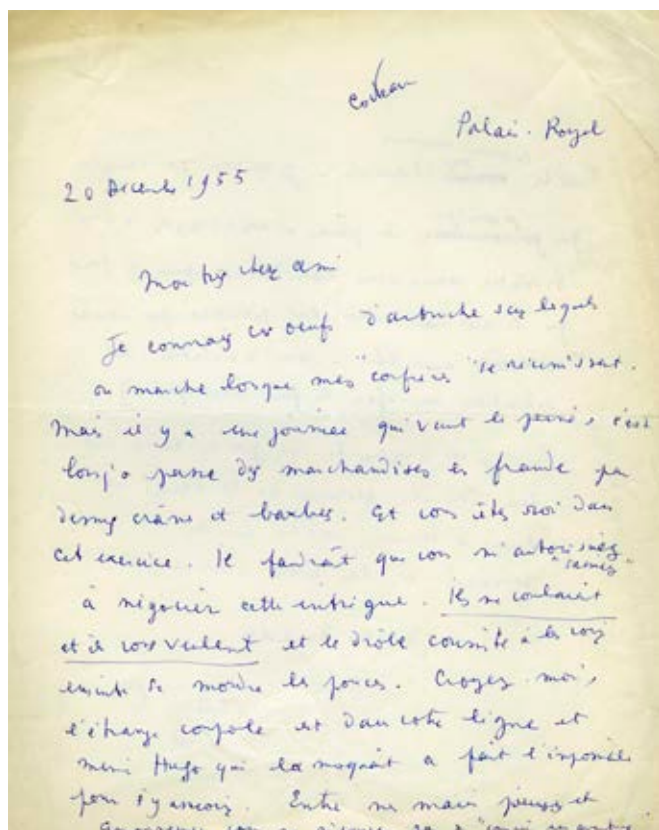 Cocteau
Palais-Royal
20 Décembre 1955
Mon très cher ami
Je connais ces oeufs d'autruche sur lesquels
on marche lorsque mes "confrères" se réunissent.
Mais il y a une journée qui vaut la peine, c'est
lorsqu'on passe des marchandises en fraude par
dessus crâne et barbes. Et vous êtes roi dans
cet exercice. Il faudrait que vous m'autorisiez
"
à négocier cette intrigue. Ils me voulaient
et ils vous veulent et le drôle consiste à les voir
ensuite se mordre les pouces. Croyez-moi,
l'étrange coupole est dans votre ligne et
même Hugo qui la moquait a fait l'impossible
pour s'y asseoir. Entre nos mains